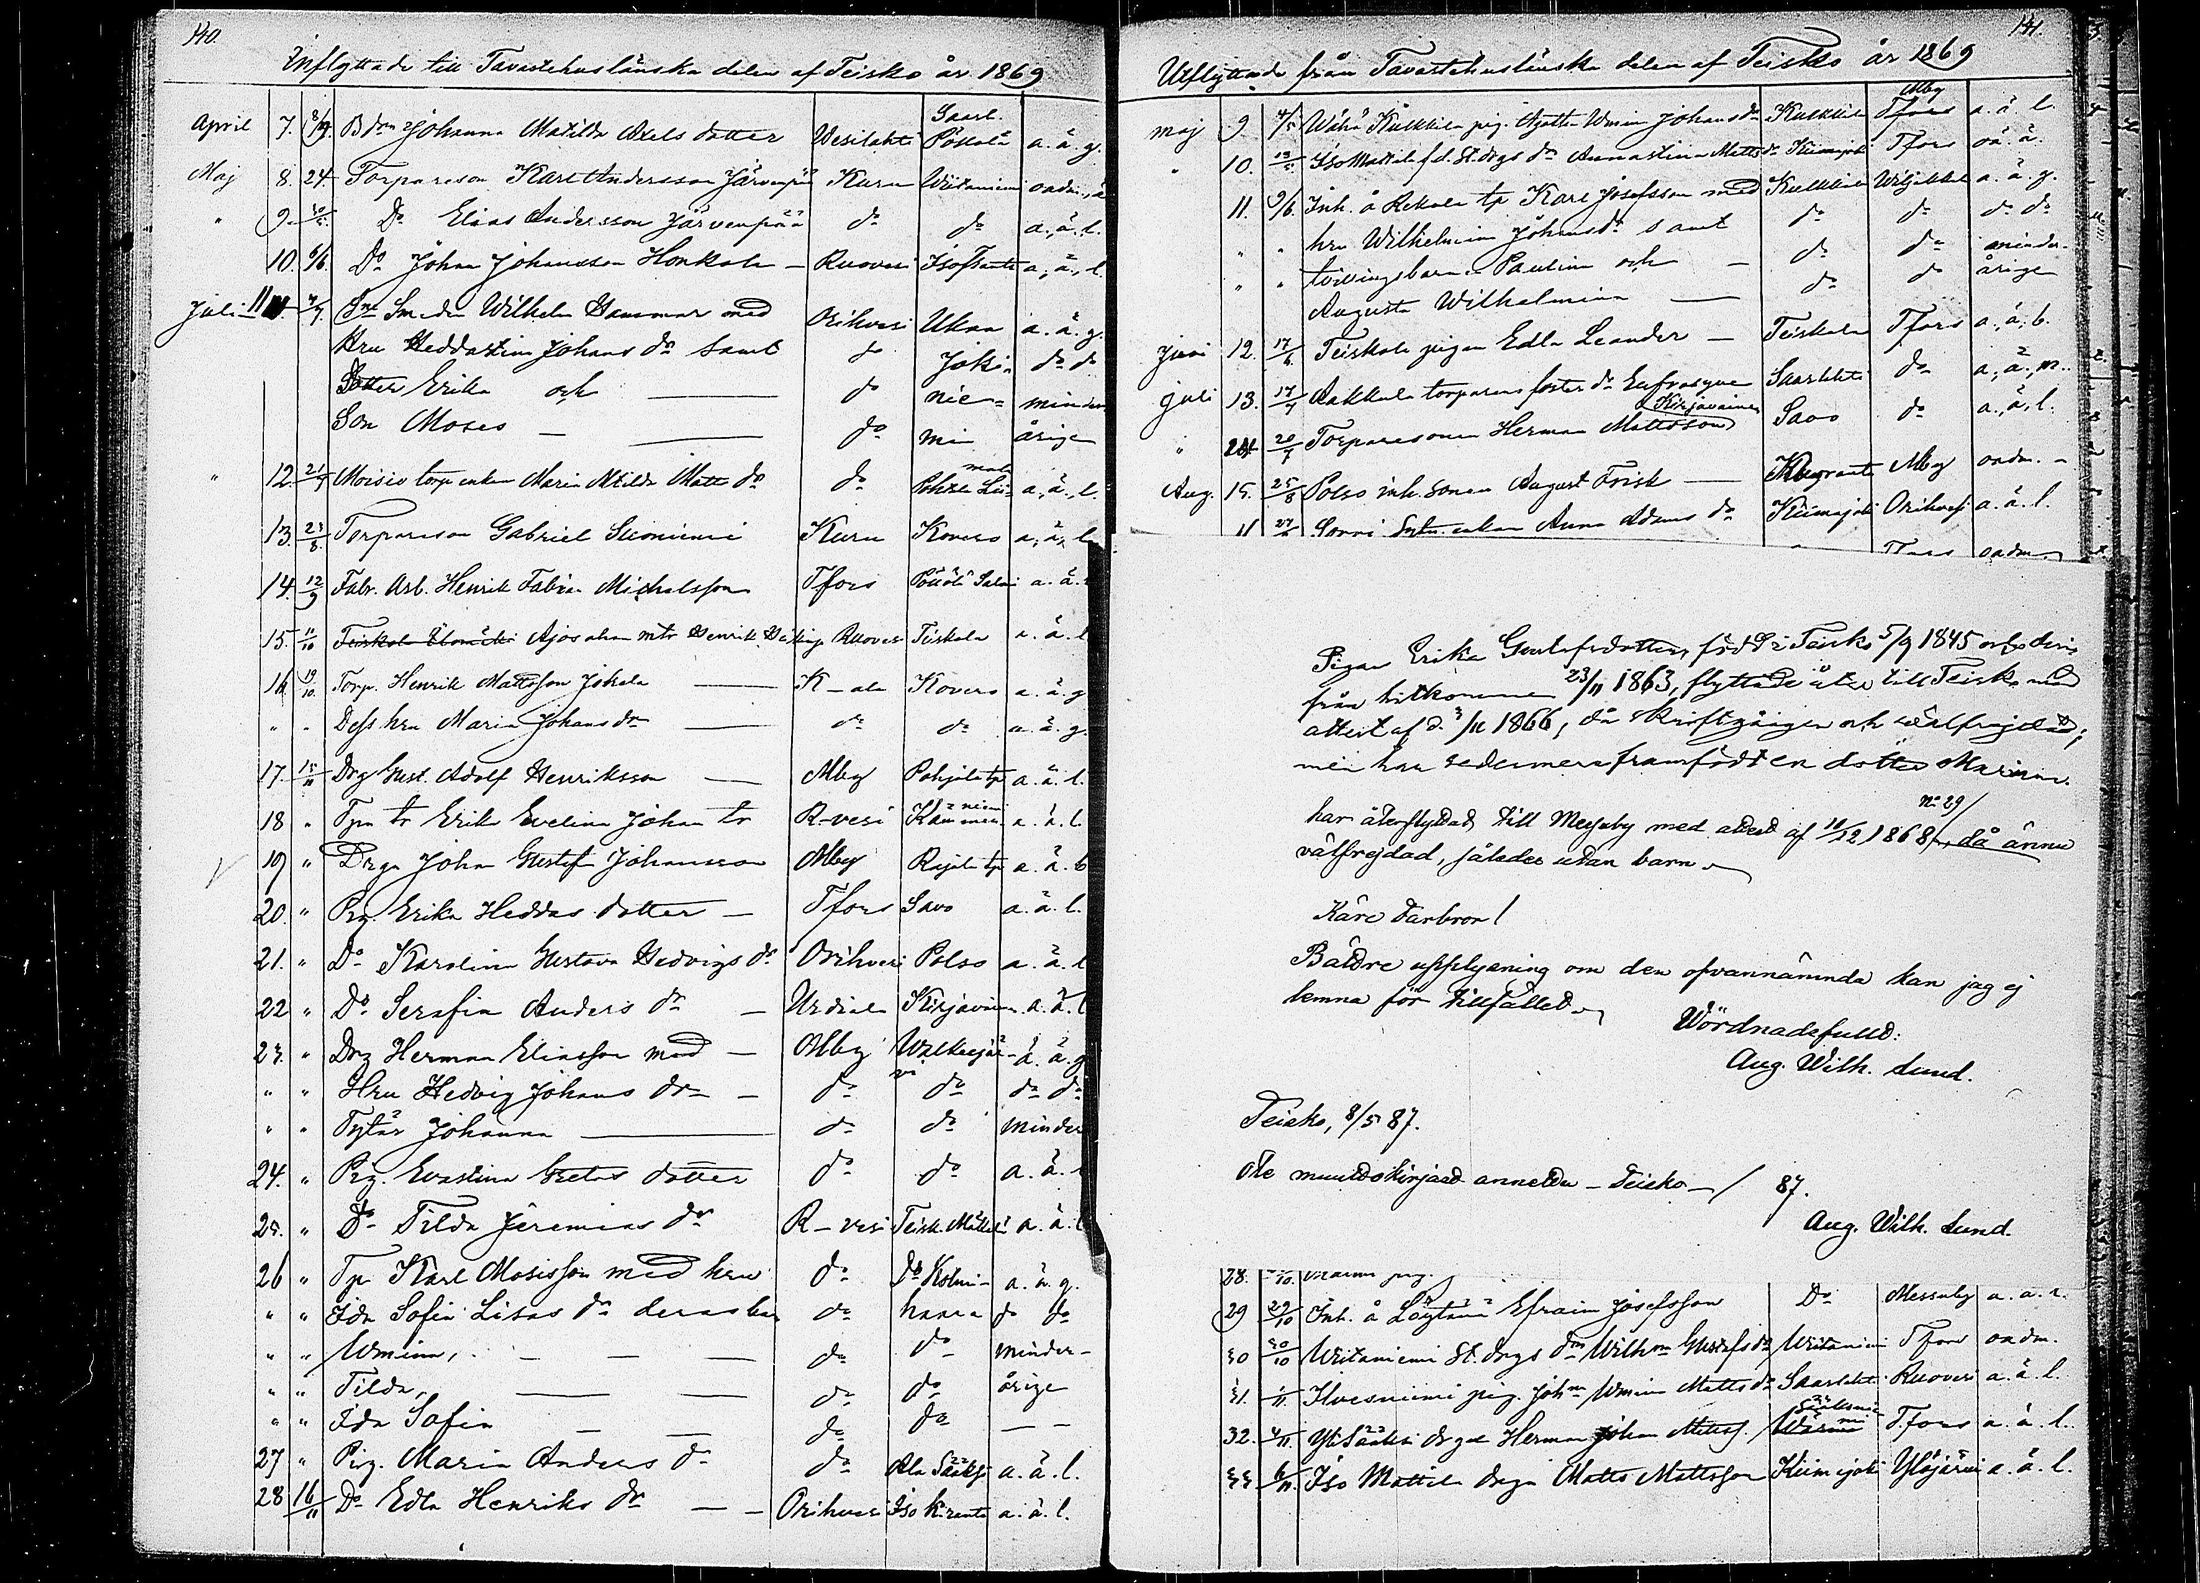 140.
Inflyttade till Tavastehuslänska delen af Teisko år 1869
April 7. Bdrn Johanna Matilda Axels dotter Wesilahti Pöllälä a. ä. g.
Maj 8. 24 Torpareson Karl Andersson Järvenpää Kuru Wiitaniemi oadm.
" 9. Do Elias Andersson Järvenpää do do a. ä. l.
10. 6/6. Do Johan Johansson Honkala - Ruovesi a. ä. l.
Juli 11 Smeden Wilhelm Hammar med Orihvesi Ukaa a. ä. g.
Hru Heddastina Johans dr samt do Joki- do do
Dotter Erika och do nie- minder
Son Moses - do mi årige
" 12. 21/7 Moisio torp enkan Maria Matilda Matts dr do a. ä. l.
13. 23/8. Torpareson Gabriel Suoniemi Kuru Kovero a. ä. l.
14. 12/9 Fabr. Arb. Henrik Fabian Michelsson Tfors a. ä.
15. 11/10 Ajos ahon mtr Henrik Ruovesi Teiskola a. ä. l
16. 19/10. Torp. Henrik Mattsson Jokela K-ala Kovero a. ä. g
" " Dess hru Maria Johans dr do do a. ä. g.
17. 15/11 Drg Gust. Adolf Henriksson Mby Pohjola tp a. ä. l.
18 " Tpr tr Erika Evelina Johan tr R-vesi a. ä. l.
19 " Drgn Johan Gustaf Johansson Mby a. ä. b
20. " Pig. Erika Heddas dotter - Tfors Savo a. ä. l.
21. " Do Karolina Gustava Hedvigs dr Orihvesi Polso a. ä. l
22 " Do Serafia Anders dr - Urdiala Kirjavainen a. ä. l
23. " Drg Herman Eliasson med - Mby Walkeejär- a. ä. g
vi
" " Hru Hedvig Johans dr - do do do do
" " Tytär Johanna do do minder
24. " Pig. Evastina Gretas dotter do do a. ä.
25. " Do Tilda Jeremias dr R-vesi Teisk. Mattila a. ä. l
26 " Tpr Karl Mosisson med hru do Do Kolmi- a. ä. g.
" " Ida Sofia Lisas dr deras barn do haara do do
" " Wmina, - - - do do minder-
" " Tilda, do do årige
" " Ida Sofia do do - -
27 " Pig. Maria Anders dr do Ala Sääksi a. ä. l.
28 16/11 Do Edla Henriks dr - - Orihvesi Iso Kiranta a. ä. l.
141.
Utflyttade från Tavastehuslänska delen af Teisko år 1869
Maj 9. 4/5 Wähä Kulkkila pig. Agatha Wmina Johans dr Kulkkila Tfors a. ä. l.
" 10. Iso Mattila f.d. St. drgs dr Annastina Matts dr Kiimajoki Tfors oä. ä.
11. 9/6. Inh. å Rekola tp Karl Josefsson med Kulkkila a. ä. g.
" " hru Wilhelmina Johans dr samt do do do do
" " tvillingbarnen Paulina och - do do minder-
Augusta Wilhelmina do do årige
Juni 12. 17/6. Teiskola pigan Edla Leander - Teiskola Tfors a. ä. b.
Juli 13. 17/7 Aakkula torparens foster dr Eufrosyne Saarlahti do a. ä. m.
Kirjavainen
" 14 20/7 Torparesonen Herman Mattsson Savo do a. ä. l.
Aug. 15. 25/8 Polso inh. sonen August Frisk Mby oadm. -
Sorri enkan Anna Adams dr Kiimajoki Orihvesi a. ä. l.
Tfors oadm.
Pigan Erika Gustafsdotter, född i Teisko 5/9 1845 och der-
ifrån hitkommen 23/11 1863, flyttade åter till Teisko med
attest af d. 3/11 1866, då skriftgången och välfrejdad;
men har sedermera framfödt en dotter Maria.
No 29/
har återflyttat till Messuby med attest af 10/12 1868, då ännu
välfrejdad, således utan barn.
Käre Farbror!
Bättre upplysning om den ofvannämnda kan jag ej
lemna för tillfället.
Wördnadsfullt:
Aug. Wilh. Lund.
Teisko, 8/5 87.
Ole muuttokirjaad annettu - Teisko - / 87.
Aug. Wilh. Lund.
28. /10. pig.
29 29/10 Inh. å Löytänä Efraim Josefsson Do Messuby a. ä. l.
30 30/10 Writaniemi St. drgs drn Wilhna Gustafs dr Writaniemi Tfors oadm.
31. /11. Ilvesniemi pig. Johna Wmina Matts dr Saarlahti Ruovesi a. ä. l.
32. 4/11. Yli Sääksi drgn Herman Johan Mattss. Tfors a. ä. l.
33 6/11. Iso Mattila drgn Matts Mattsson Kiimajoki Ylöjärvi a. ä. l.